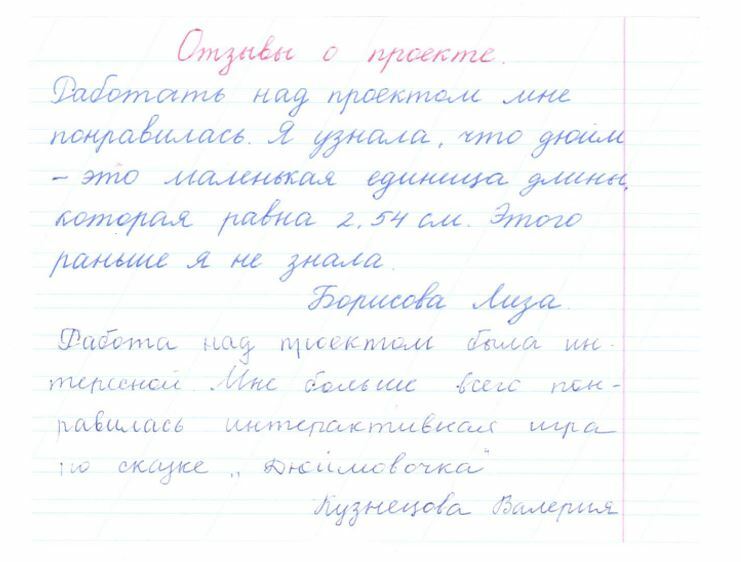 Отзывы о проекте.
Работать над проектом мне
понравилась. Я узнала, что дюйм
– это маленькая единица длины,
которая равна 2,54 см. Этого
раньше я не знала.
Борисова Лиза.
Работа над проектом была ин-
тересной. Мне больше всего пон-
равилась интерактивная игра
по сказке „Дюймовочка"
Кузнецова Валерия